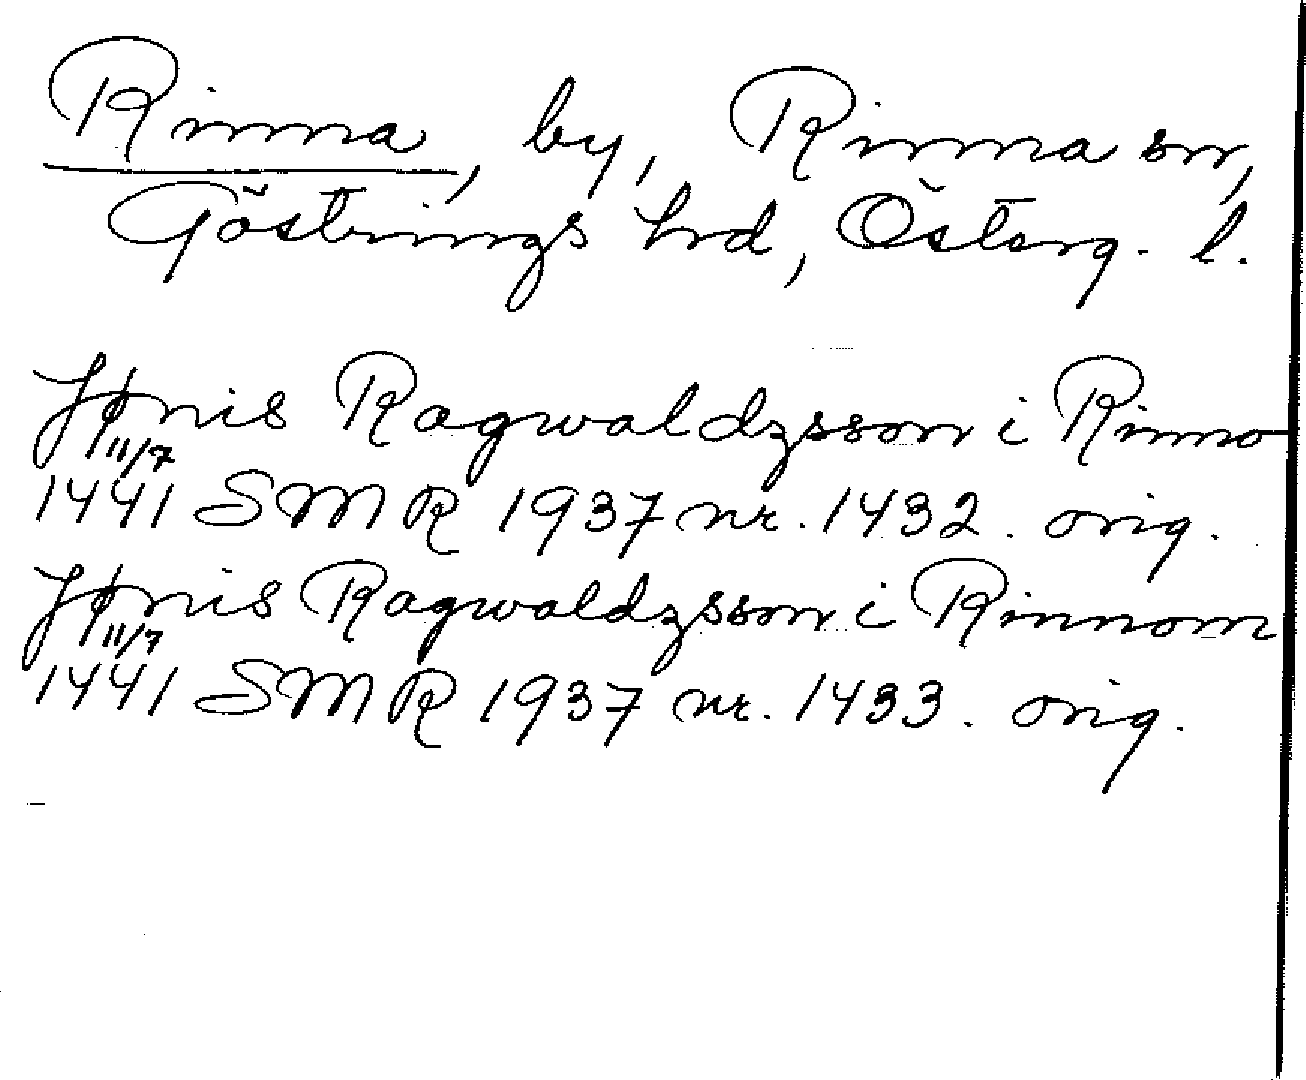 Rinna, by, Rinna sn,
Göstrings hrd, Österg. l.
Jønis Ragwaldzsson i Rinno
11/7
1441 SMR 1937 nr. 1432. orig.
Jønis Ragwaldzsson i Rinnom
11/7
1441 SMR 1937 nr. 1433. orig.